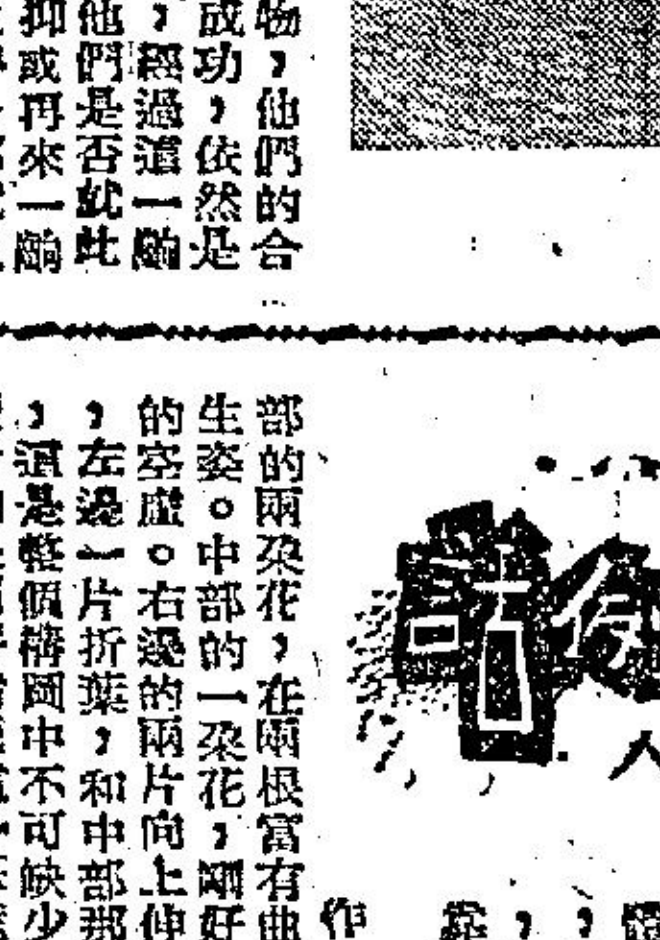 物，他們的合
成功，依然是
，經過這一齣
他們是否就此
抑或再來一齣
部的兩朶花，在兩根富有曲
生姿。中部的一朶花，剛好
的空虛。右邊的兩片向上伸
，左邊一片折葉，和中部那
，這是整個構圖中不可缺少
作